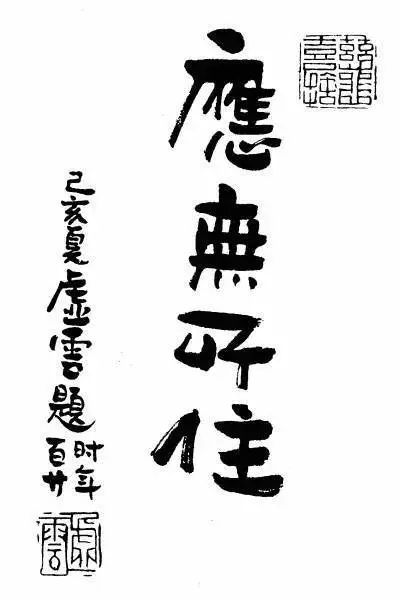 慈悲
喜捨
應無所住
己亥夏虛雲題
时年
百廿
虛
雲